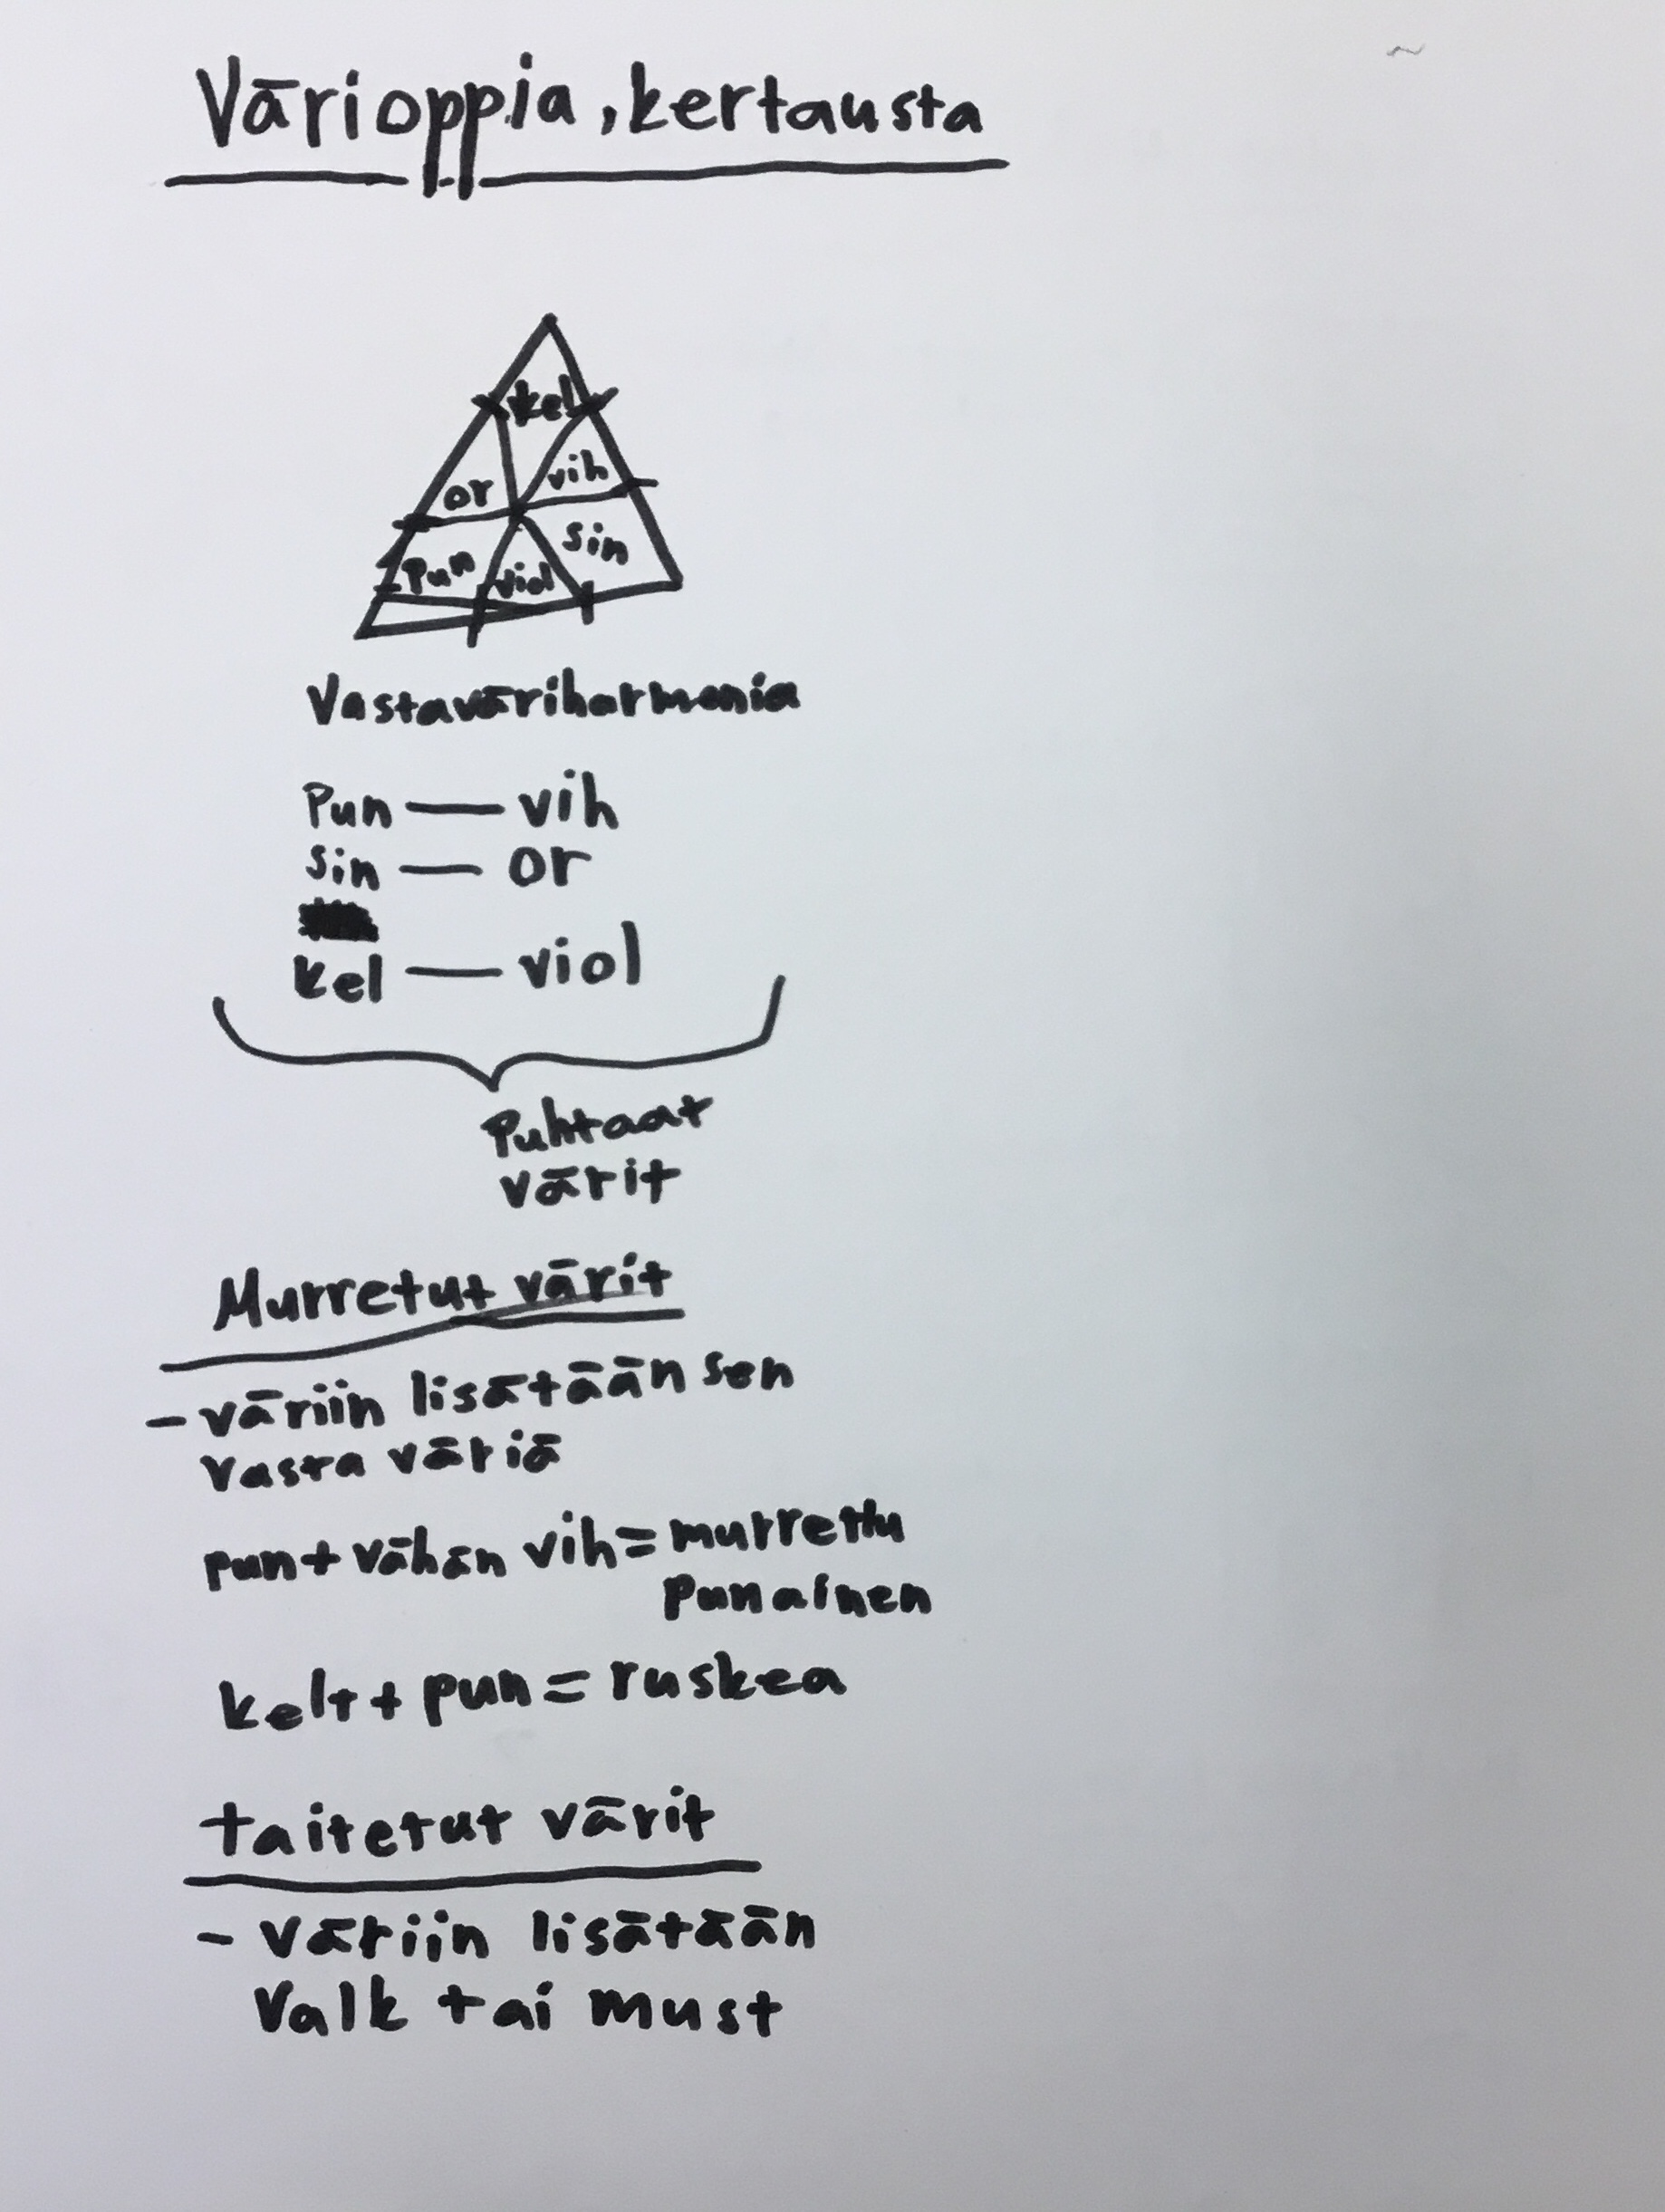 Värioppia, kertausta
kel
or vih
Pun viol sin
Vastaväriharmonia
Pun — vih
sin — or
kel — viol
Puhtaat
värit
Murretut värit
- väriin lisätään sen
vasta väriä
pun + vähän vih = murrettu
punainen
kelt + pun = ruskea
taitetut värit
- väriin lisätään
valk tai must